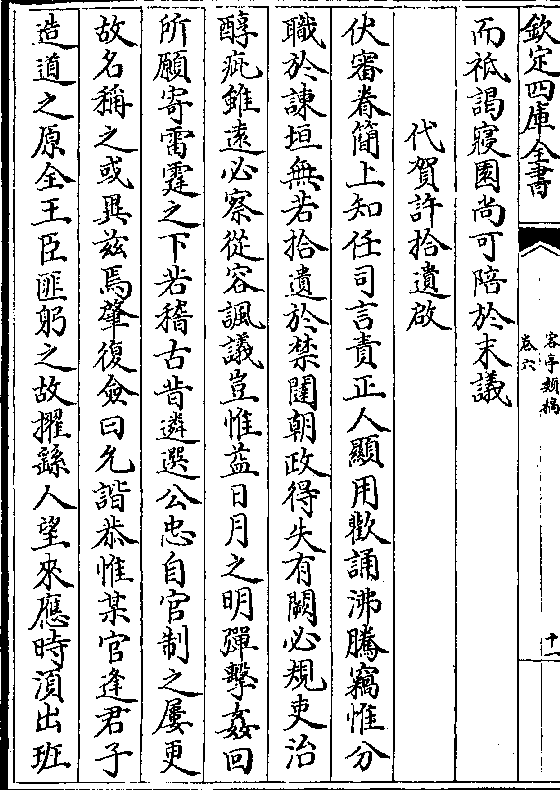 欽定四庫全書
客亭類稿
卷六
十一
而祗謁寢園尚可陪於末議
代賀許拾遺啟
伏審眷簡上知任司言責正人顯用歡誦沸騰竊惟分
職於諫垣無若拾遺於禁闥朝政得失有闕必規吏治
醇疵雖遠必察從容諷議豈惟益日月之明彈擊姦回
所願寄雷霆之下若稽古昔遴選公忠自官制之屢更
故名稱之或異兹焉肇復僉曰允諧恭惟某官逢君子
造道之原全王臣匪躬之故擢繇人望來應時須出班